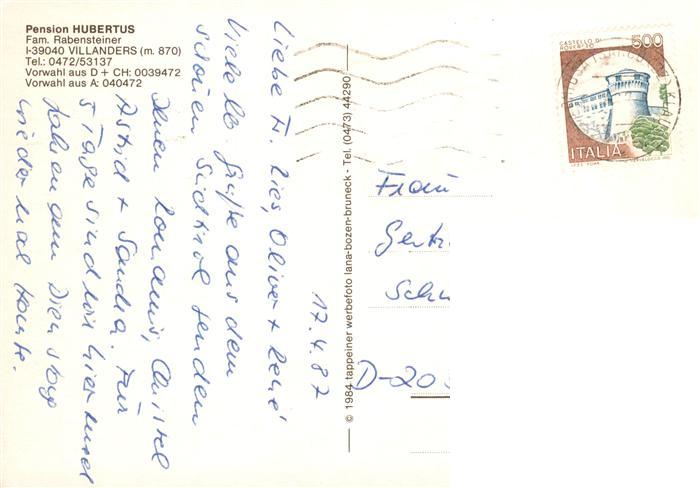 Pension HUBERTUS
Fam. Rabensteiner
I-39040 VILLANDERS (m. 870)
Tel.: 0472/53137
Vorwahl aus D + CH: 0039472
Vorwahl aus A: 040472
17.4.87
Liebe Fr. Lies, Oliver + René!
Viele lb. Grüße aus dem
schönen Südtirol senden
Ihnen Christel
Astrid + Sandra. Für
5 Tage sind wir hier und
fahren am Dienstag
wieder nach Hause.
© 1984 tappeiner werbefoto lana-bozen-bruneck - Tel. (0473) 44290
CASTELLO DI
ROVERETO
500
ITALIA
Frau
Gert
Sch
D-20